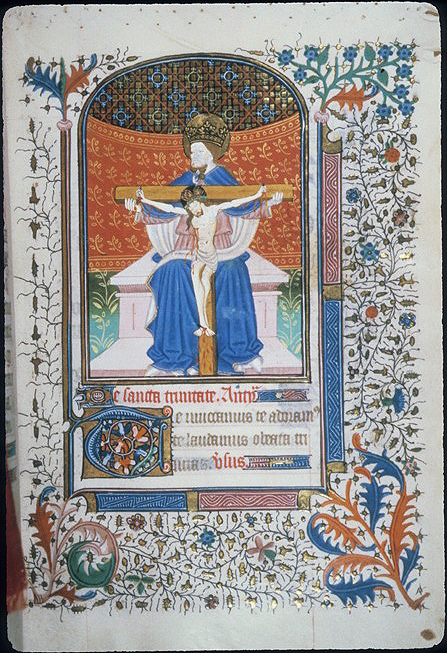 De sancta trinitate. Antiᵽ̄
Te inuocamus te adoramꝰ
te laudamus o beata tri
nitas. v̄sus